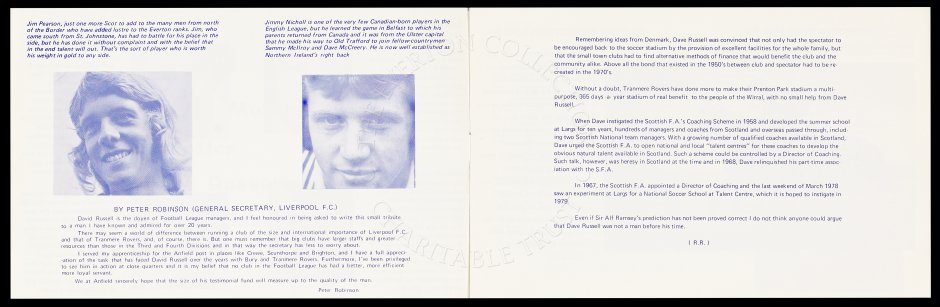 Jim Pearson, just one more Scot to add to the many men from north
of the Border who have added lustre to the Everton ranks. Jim, who
came south from St. Johnstone, has had to battle for his place in the
side, but he has done it without complaint and with the belief that
in the end talent will out. That's the sort of player who is worth
his weight in gold to any side.
Jimmy Nicholl is one of the very few Canadian-born players in the
English League, but he learned the game in Belfast to which his
parents returned from Canada and it was from the Ulster capital
that he made his way to Old Trafford to join fellow-countryman
Sammy McIlroy and Dave McCreery. He is now well established as
Northern Ireland's right back
BY PETER ROBINSON (GENERAL SECRETARY, LIVERPOOL F.C.)
David Russell is the doyen of Football League managers, and I feel honoured in being asked to write this small tribute
to a man I have known and admired for over 20 years.
There may seem a world of difference between running a club of the size and international importance of Liverpool F.C.
and that of Tranmere Rovers, and, of course, there is. But one must remember that big clubs have larger staffs and greater
resources than those in the Third and Fourth Divisions and in that way the secretary has less to worry about.
I served my apprenticeship for the Anfield post in places like Crewe, Scunthorpe and Brighton, and I have a full appreci-
ation of the task that has faced David Russell over the years with Bury and Tranmere Rovers. Furthermore, I've been privileged
to see him in action at close quarters and it is my belief that no club in the Football League has had a better, more efficient
more loyal servant.
We at Anfield sincerely hope that the size of his testimonial fund will measure up to the quality of the man.
Peter Robinson
Remembering ideas from Denmark, Dave Russell was convinced that not only had the spectator to
be encouraged back to the soccer stadium by the provision of excellent facilities for the whole family, but
that the small town clubs had to find alternative methods of finance that would benefit the club and the
community alike. Above all the bond that existed in the 1950's between club and spectator had to be re-
created in the 1970's.
Without a doubt, Tranmere Rovers have done more to make their Prenton Park stadium a multi-
purpose, 365 days a year stadium of real benefit to the people of the Wirral, with no small help from Dave
Russell.
When Dave instigated the Scottish F.A.'s Coaching Scheme in 1958 and developed the summer school
at Largs for ten years, hundreds of managers and coaches from Scotland and overseas passed through, includ-
ing two Scottish National team managers. With a growing number of qualified coaches available in Scotland,
Dave urged the Scottish F.A. to open national and local "talent centres" for these coaches to develop the
obvious natural talent available in Scotland. Such a scheme could be controlled by a Director of Coaching.
Such talk, however, was heresy in Scotland at the time and in 1968, Dave relinquished his part-time assoc-
iation with the S.F.A.
In 1967, the Scottish F.A. appointed a Director of Coaching and the last weekend of March 1978
saw an experiment at Largs for a National Soccer School at Talent Centre, which it is hoped to instigate in
1979.
Even if Sir Alf Ramsey's prediction has not been proved correct I do not think anyone could argue
that Dave Russell was not a man before his time.
( R.R. )